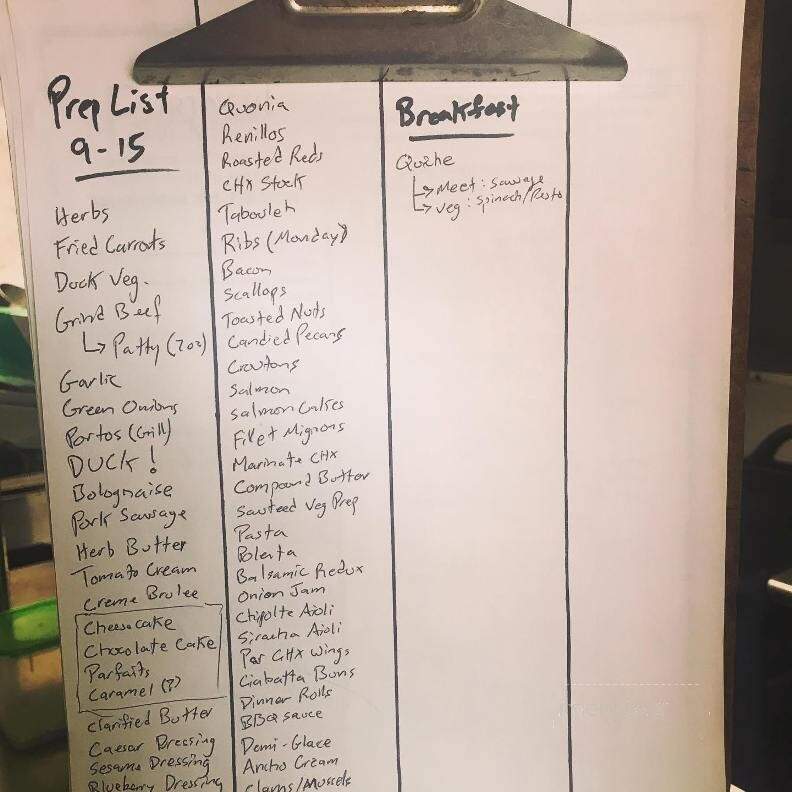 Prep List
9-15
Herbs
Fried Carrots
Duck Veg.
Grind Beef
↳ Patty (7oz)
Garlic
Green Onions
Portos (Grill)
DUCK!
Bolognaise
Pork Sausage
Herb Butter
Tomato Cream
Creme Brulee
Cheesecake
Chocolate Cake
Parfaits
Caramel (?)
Clarified Butter
Caesar Dressing
Sesame Dressing
Blueberry Dressing
Quonia
Renillos
Roasted Reds
CHX Stock
Tabouleh
Ribs (Monday)
Bacon
Scallops
Toasted Nuts
Candied Pecans
Croutons
Salmon
Salmon Cakes
Filet Mignons
Marinate CHX
Compound Butter
Sauteed Veg Prep
Pasta
Polenta
Balsamic Redux
Onion Jam
Chipolte Aioli
Siracha Aioli
Par CHX Wings
Ciabatta Buns
Dinner Rolls
BBQ Sauce
Demi-Glace
Ancho Cream
Clams/Mussels
Breakfast
Quiche
↳ Meet: Sausage
↳ Veg: Spinach/Pesto